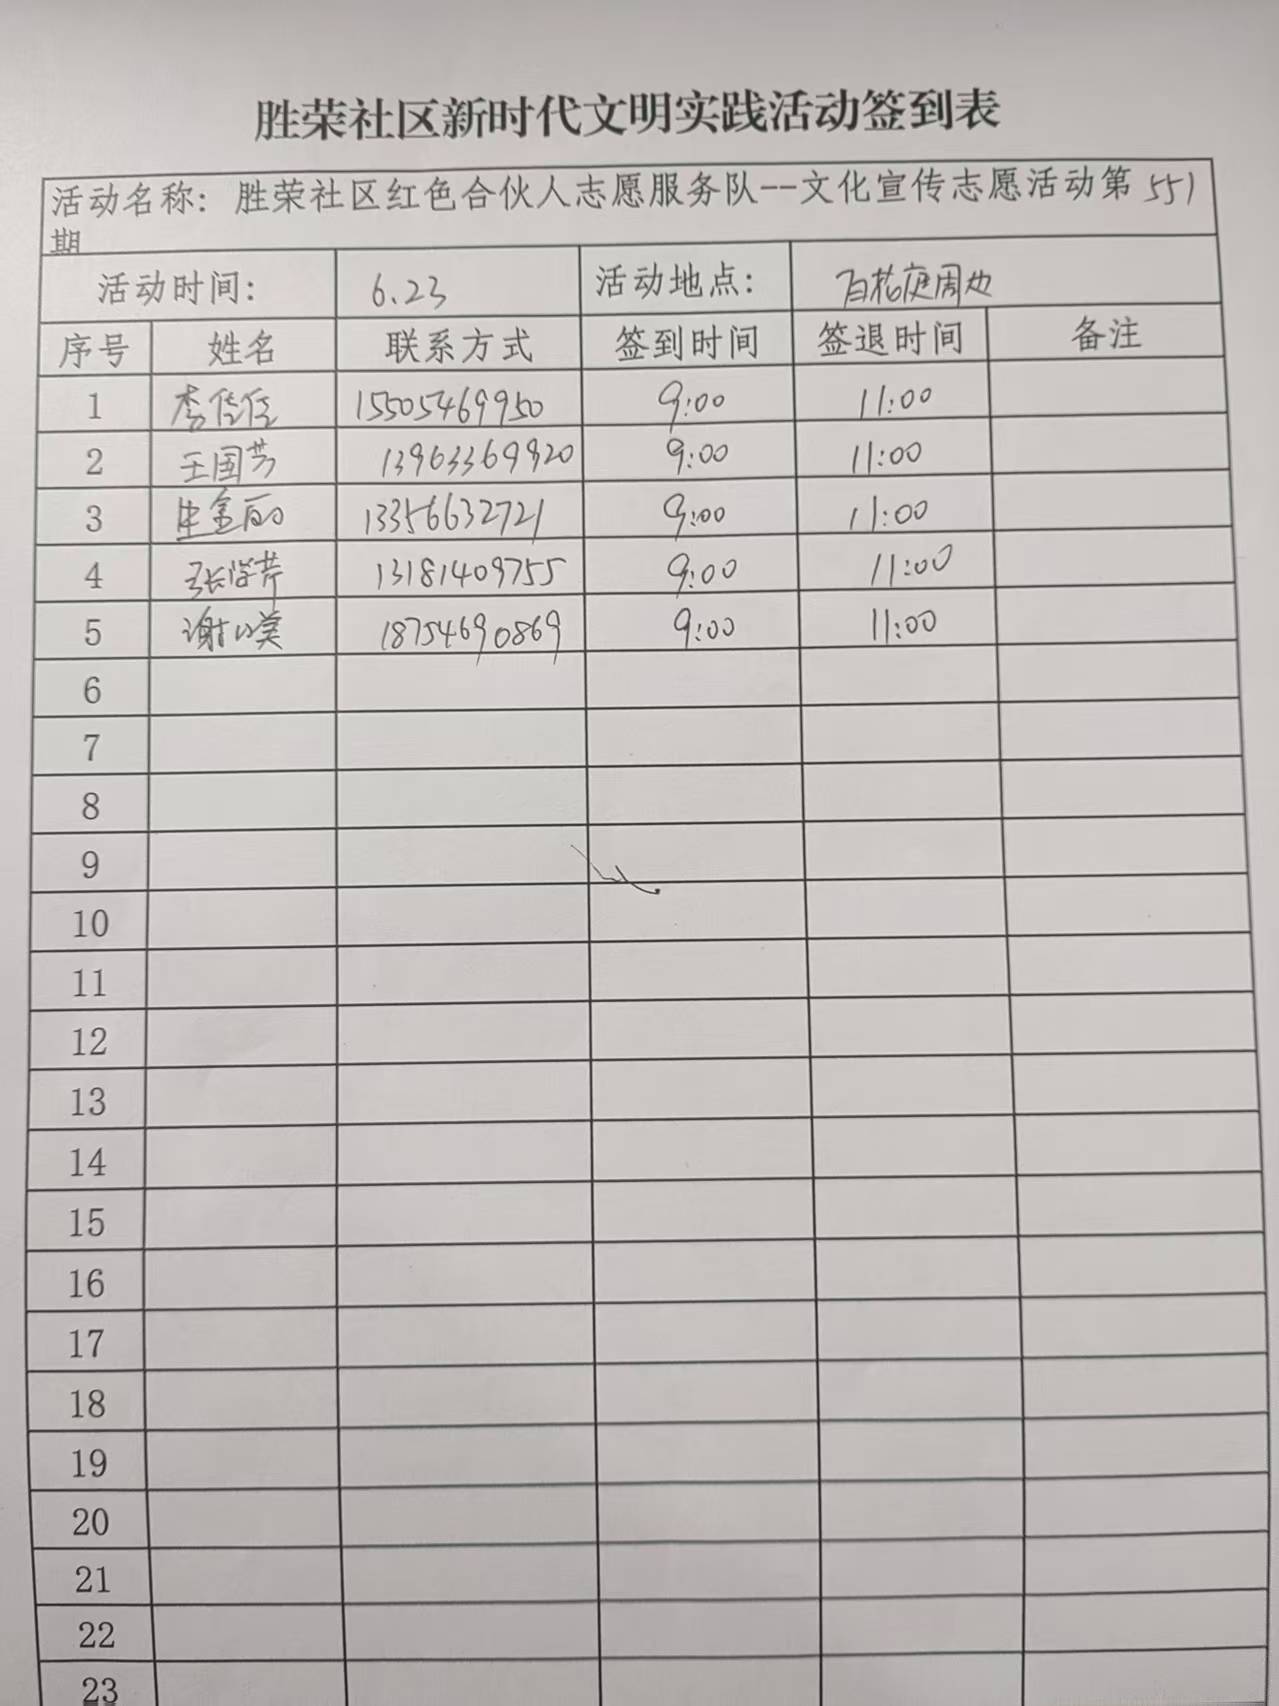 胜荣社区新时代文明实践活动签到表
活动名称：胜荣社区红色合伙人志愿服务队--文化宣传志愿活动第551
期
活动时间： 6.23 活动地点： 百花庭周边
序号 姓名 联系方式 签到时间 签退时间 备注
1 李佳佳 15505469950 9:00 11:00
2 王国芳 13963369920 9:00 11:00
3 金丽 13356632721 9:00 11:00
4 张学芹 13181409755 9:00 11:00
5 谢 18754690869 9:00 11:00
6
7
8
9
10
11
12
13
14
15
16
17
18
19
20
21
22
23